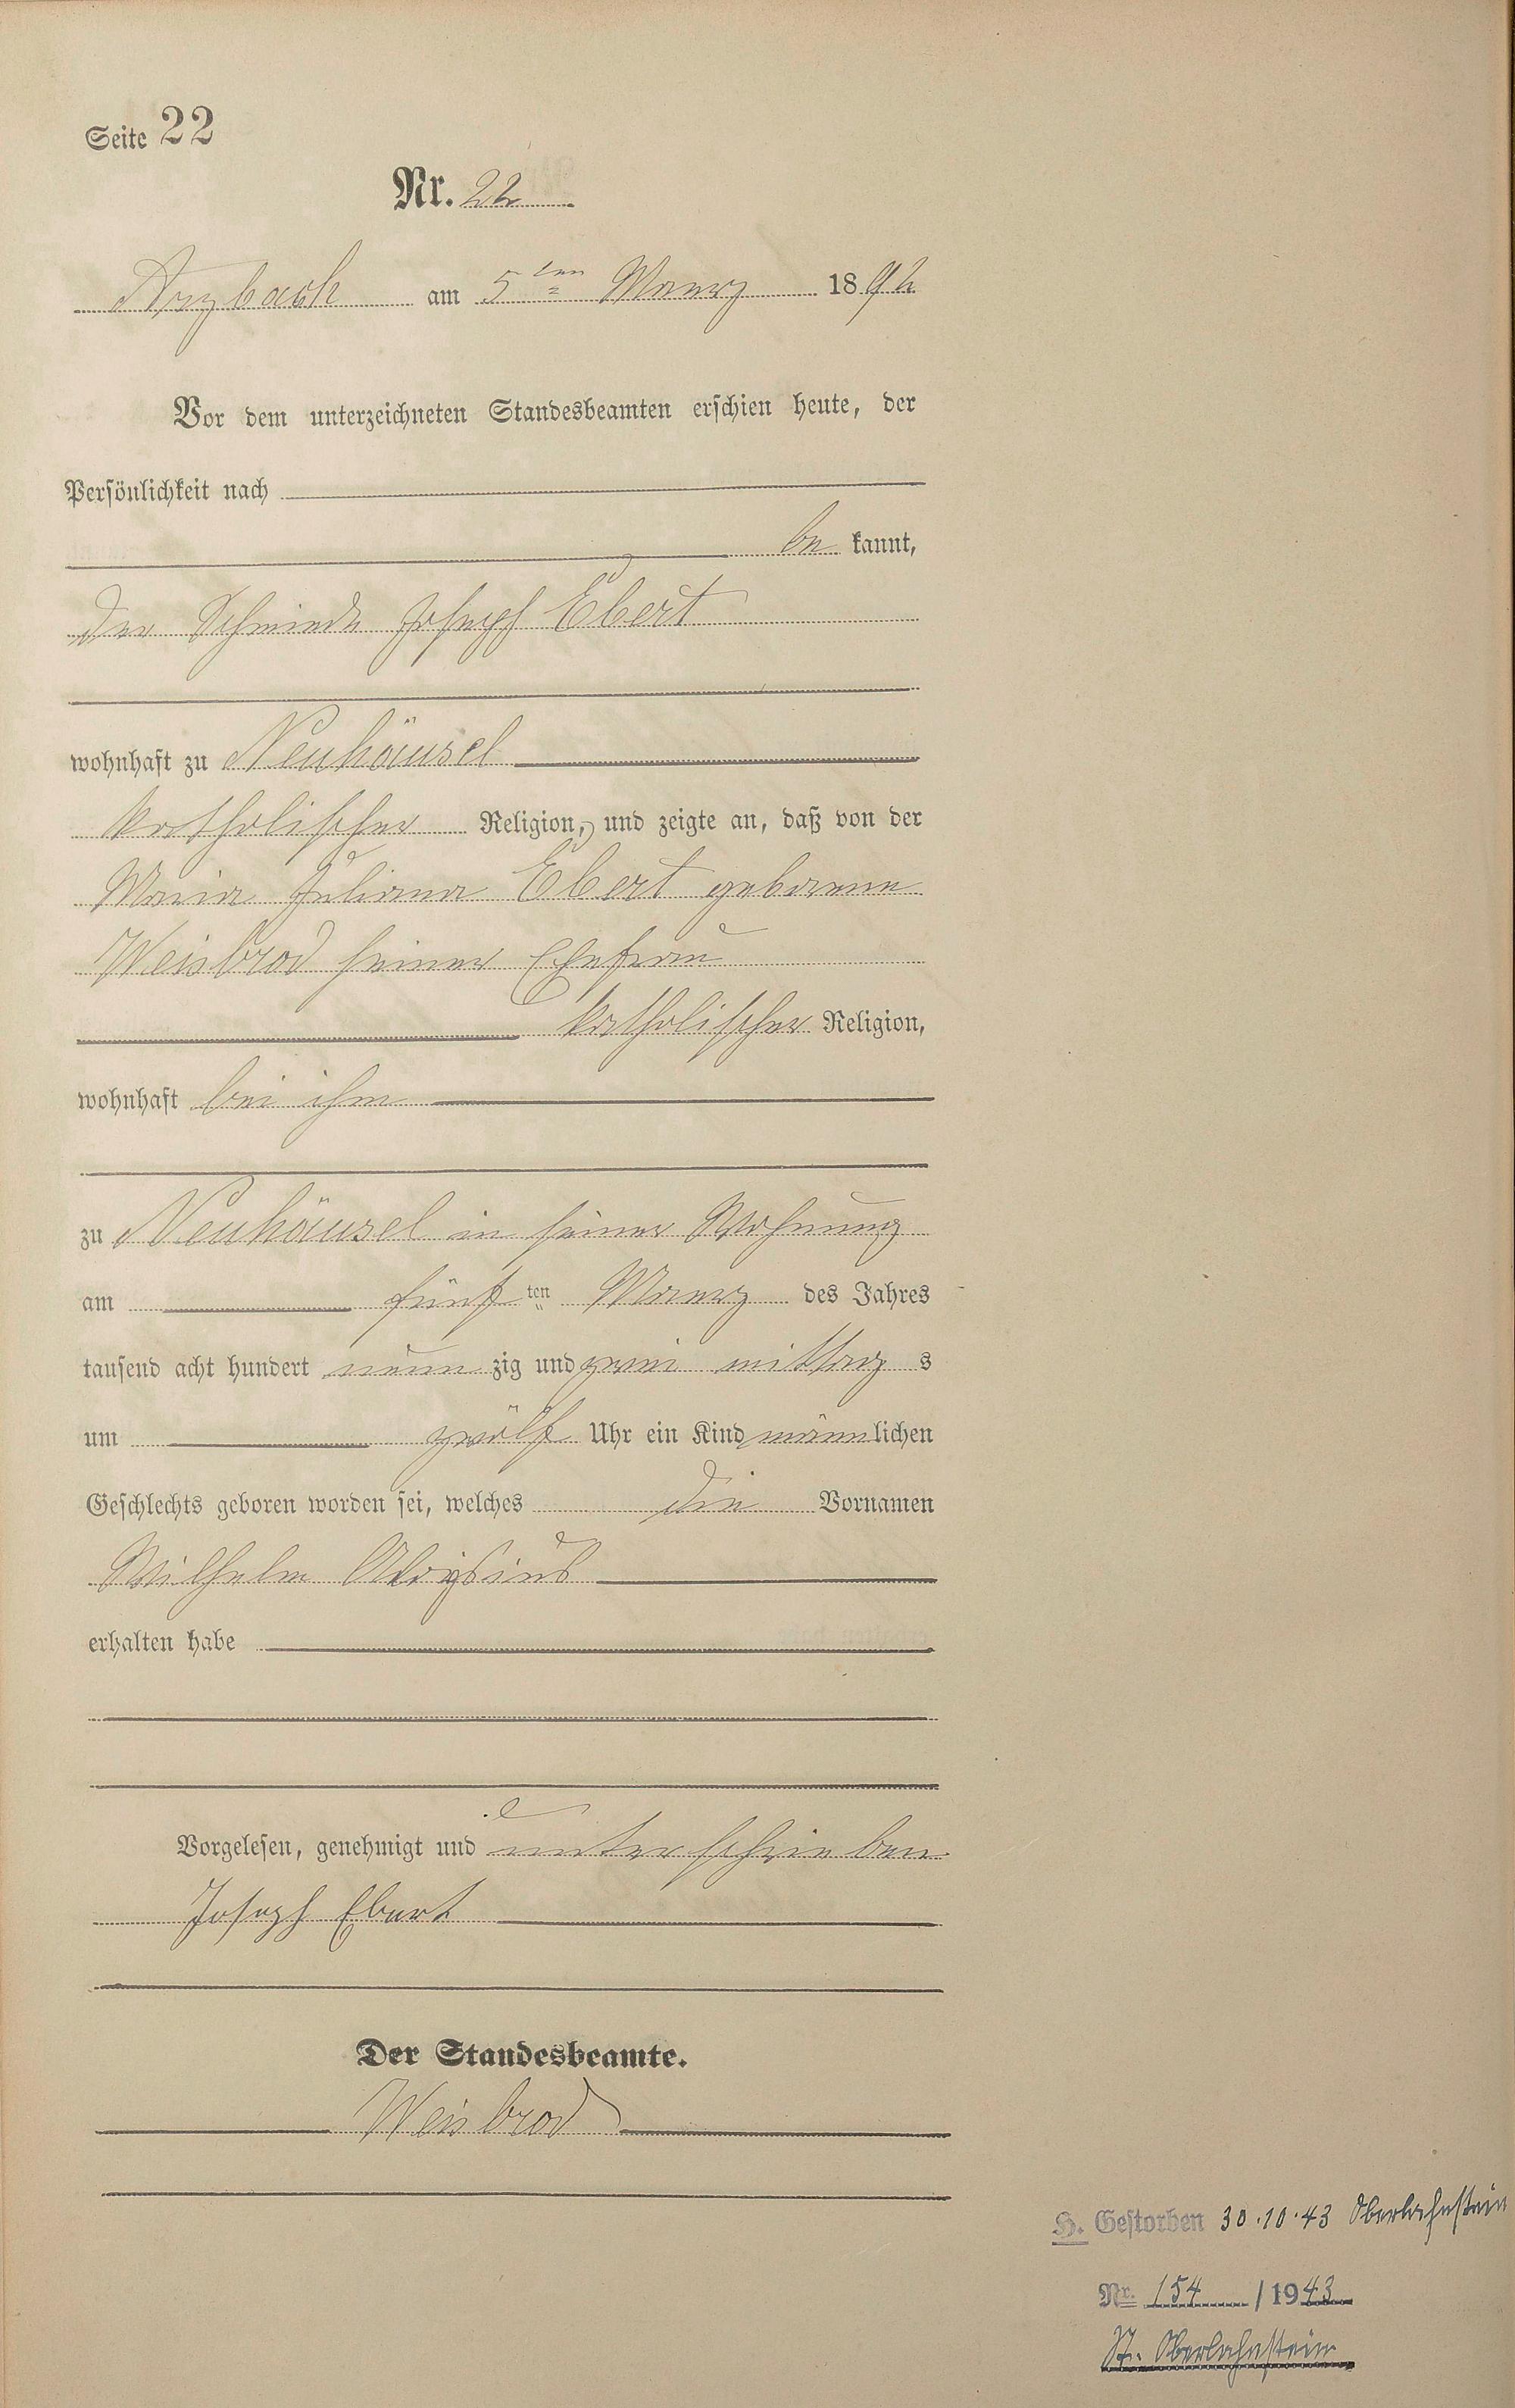 Seite 22
Nr. 22
Arzbach am 5ten Maerz 1892
Vor dem unterzeichneten Standesbeamten erschien heute, der
Persönlichkeit nach
be kannt,
der Schmiede Joseph Ebert
wohnhaft zu Neuhäusel
katholischer Religion, und zeigte an, daß von der
Maria Juliana Ebert geborene
Weisbrod seiner Ehefrau
katholischer Religion,
wohnhaft bei ihm
zu Neuhäusel in seiner Wohnung
am fünf ten Maerz des Jahres
tausend acht hundert neun zig und zwei mittag s
um zwölf Uhr ein Kind männlichen
Geschlechts geboren worden sei, welches die Vornamen
Wilhelm Aloysius
erhalten habe
Vorgelesen, genehmigt und unterschrieben
Joseph Ebert
Der Standesbeamte.
Weisbrod
H. Gestorben 30.10.43 Oberlahnstein
Nr. 154 / 1943
St. Oberlahnstein